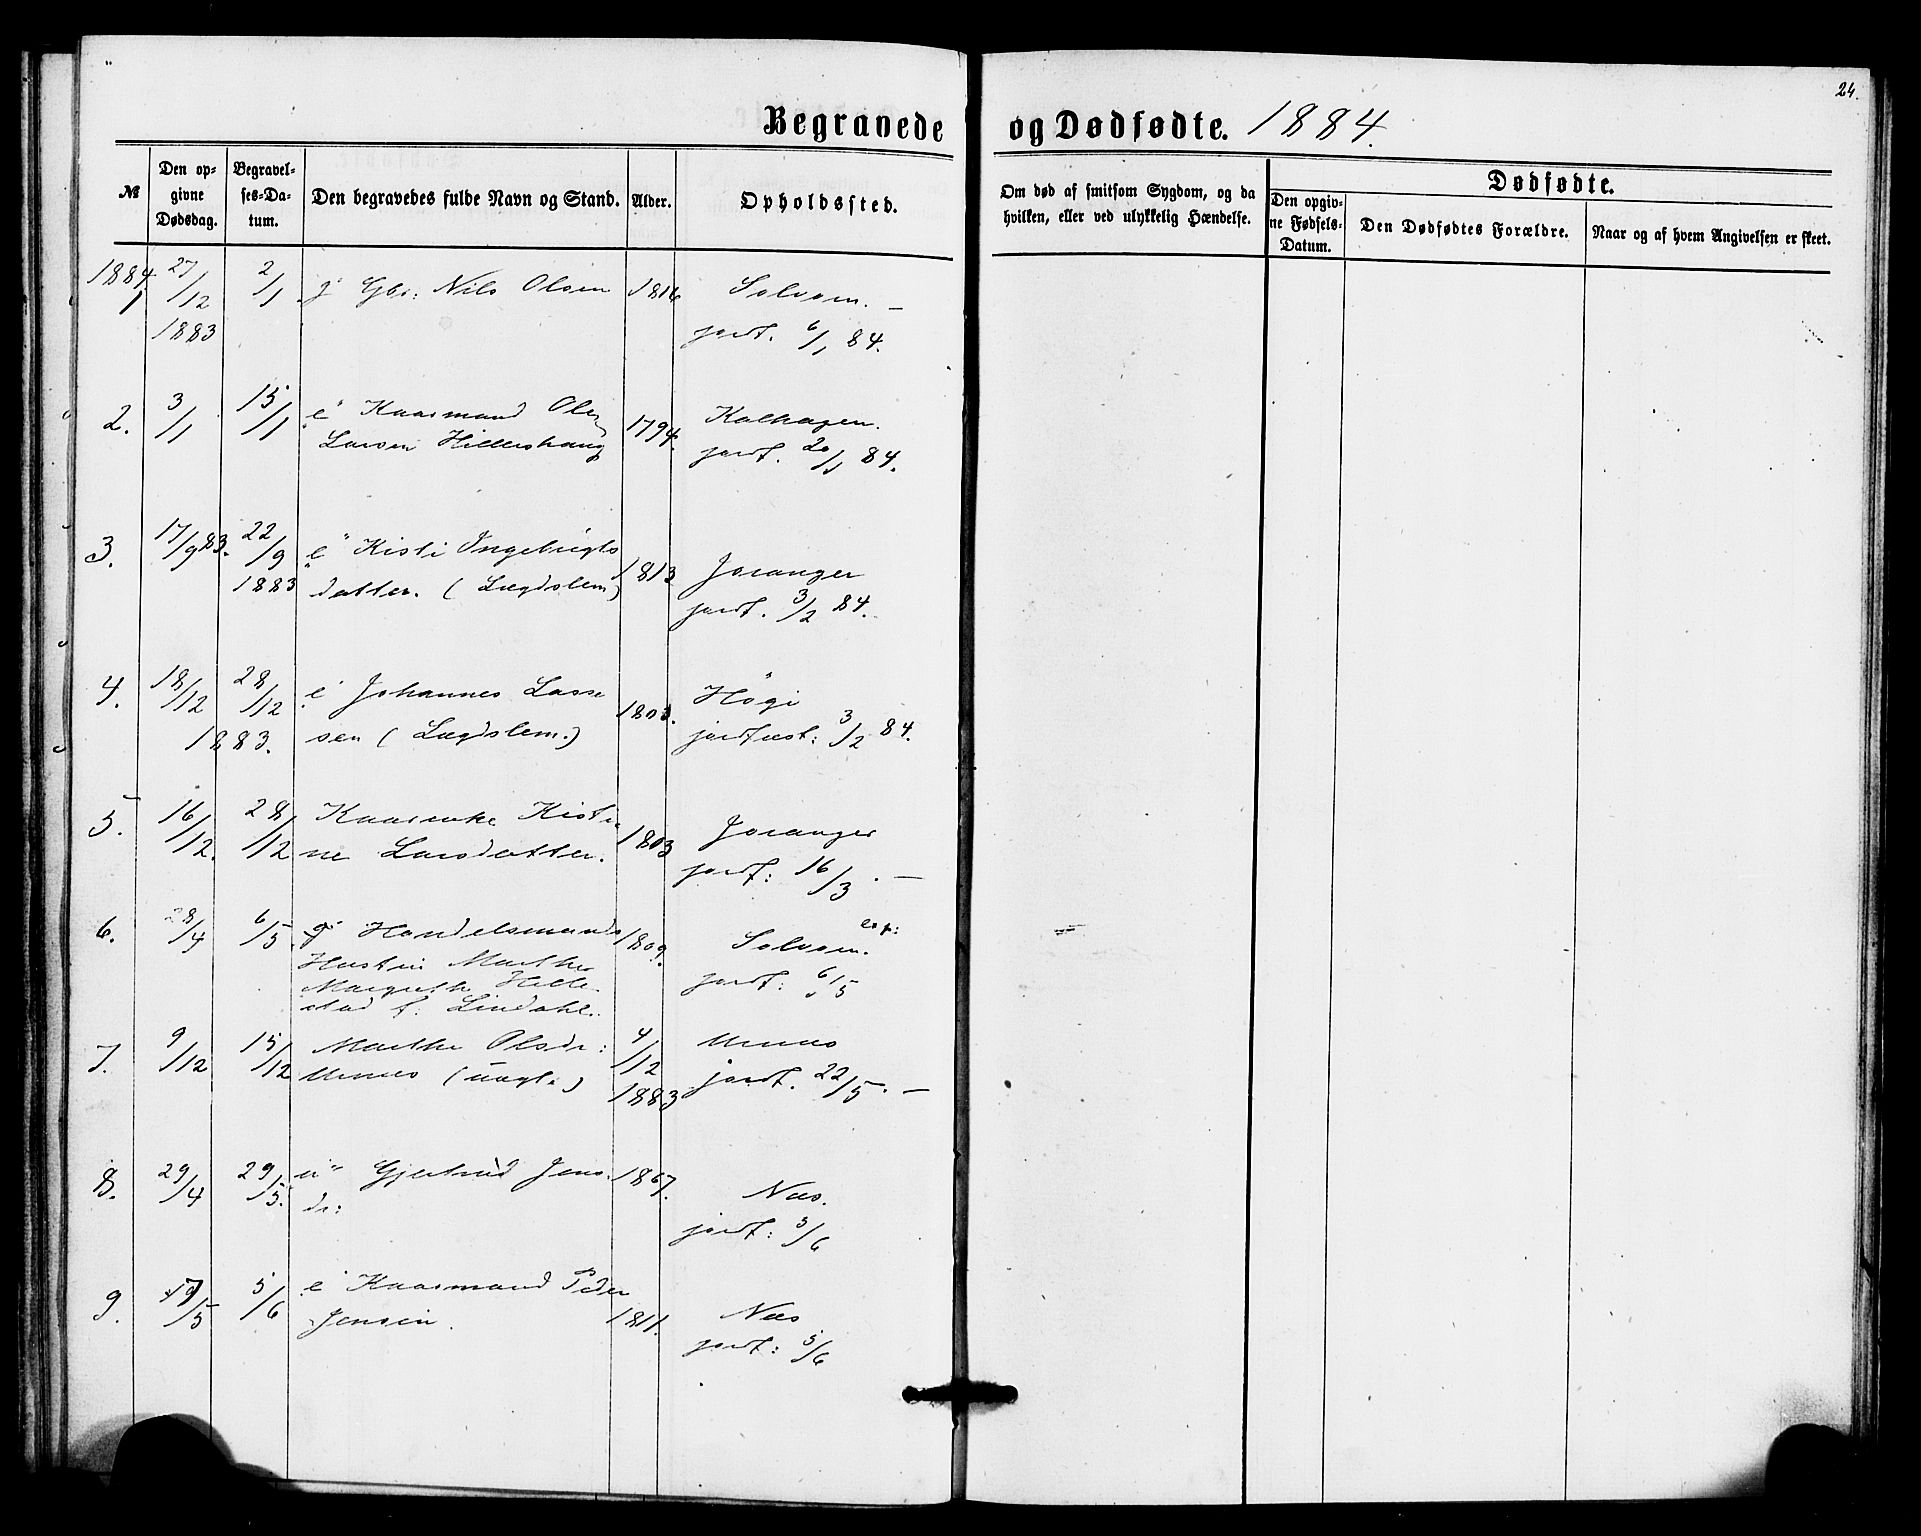 24.
Begravede og Dødfødte. 1884.
№
Den opgivne Dødsdag.
Begravelses-Datum.
Den begravedes fulde Navn og Stand.
Alder.
Opholdssted.
Om død af smitsom Sygdom, og da hvilken, eller ved ulykkelig Hændelse.
Dødfødte.
Den opgivne Fødsels-Datum.
Den Dødfødtes Forældre.
Naar og af hvem Angivelsen er skeet.
1884
1 27/12 2/1 g Gbr: Nils Olsen 1816 Solvorn. —
1883 jordf. 6/1 84.
2. 3/1 15/1 e Kaarmand Ole 1794. Kalhagen.
Larsen Hillershaug jordf. 20/1 84.
3. 17/9 83. 22/9 e Kisti Ingebrigts 1813 Joranger
1883 datter. (Lægdslem) jordf. 3/2 84.
4. 18/12 28/12 e Johannes Lasse 1803. Högi
1883. sen (Lægdslem.) jordfæst: 3/2 84.
5. 16/12. 28/12 Kaarenke Kisti 1803 Joranger
ne Larsdatter. jordf: 16/3. —
6. 28/4 6/5 g Handelsmands 1809. Solvorn.
Hustru Marthe
Margrethe Helle
stad f. Lindahl. jordf: 6/5
7. 9/12 15/12 Marthe Olsdr: 4/12 Urnes
Urnes (uægte) 1883 jordf. 22/5. —
8. 29/4 29/5. u Gjertrud Jens 1867. Næs.
dr: jordf: 3/6
9. 5/6 e Kaarmand Peder
/5 Jensen. 1811. Næs
jordf: 5/6